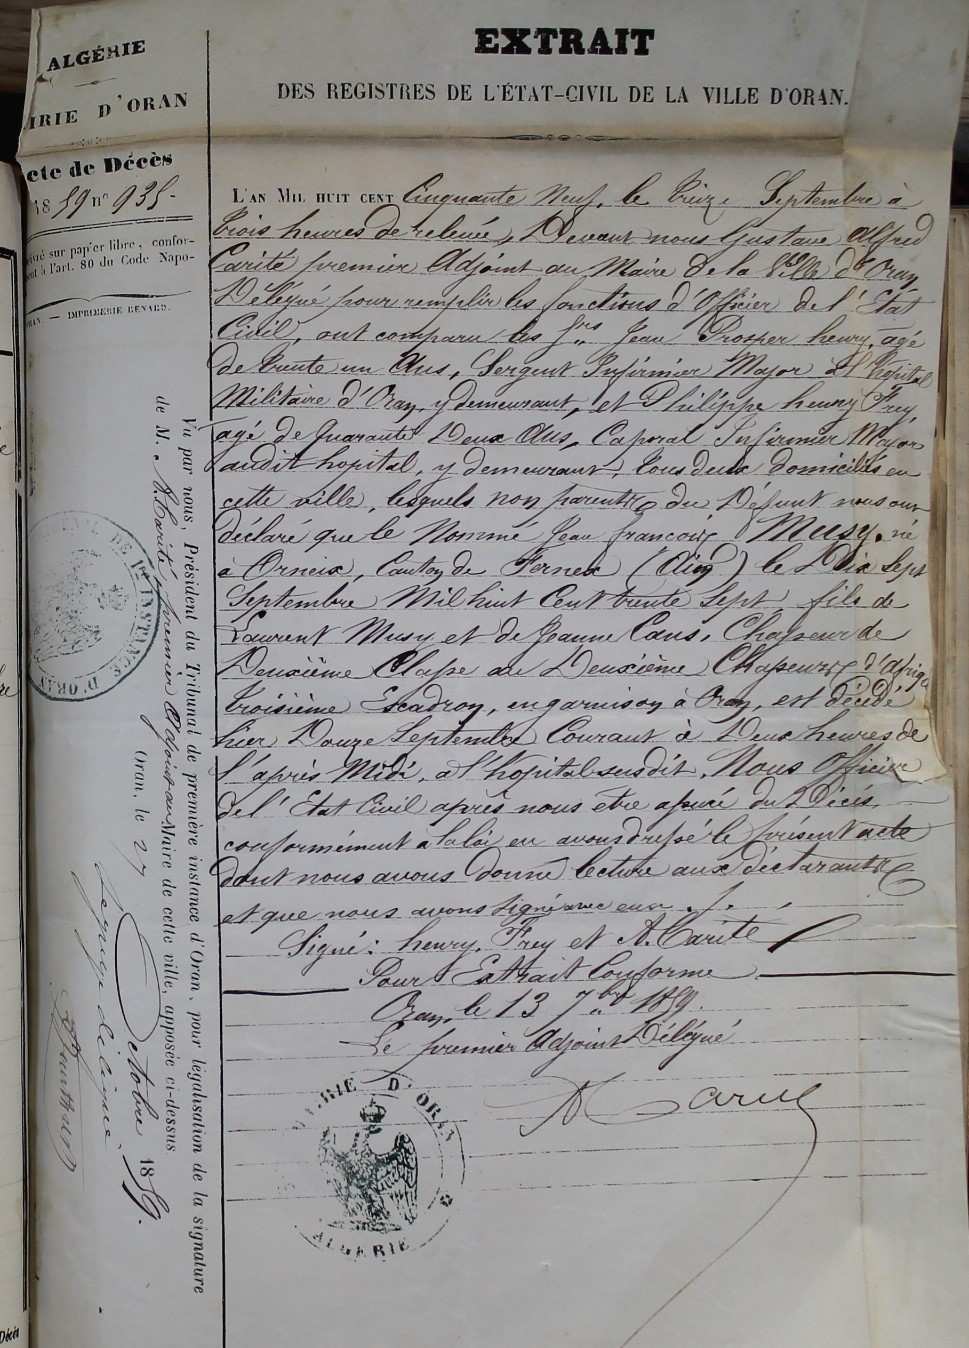 ALGÉRIE
IRIE D'ORAN
cte de Décès
1859 n° 935-
sur papier libre, confor-
à l'art. 80 du Code Napo-
— IMPRIMERIE RENARD.
EXTRAIT
DES REGISTRES DE L'ÉTAT-CIVIL DE LA VILLE D'ORAN.
L'AN MIL HUIT CENT Cinquante Neuf, le treize Septembre à
trois heures de relevée, Devant nous Gustave Alfred
Carité premier Adjoint au Maire de la Ville d'Oran
Délégué pour remplir les fonctions d'Officier de l'Etat
Civil, ont comparu les Srs Jean Prosper henry, agé
de trente un Ans, Sergent Infirmier Major à l'hopital
Militaire d'Oran, y demeurant, et Philippe henry Frey,
agé de quarante Deux Ans, Caporal Infirmier Major
audit hopital, y demeurant, tous deux domiciliés en
cette ville, lesquels non parents du Défunt nous ont
déclaré que le Nommé Jean francois Musy, né
à Orneix, Canton de Fernex (Ain) le Dix Sept
Septembre Mil huit Cent trente Sept, fils de
Laurent Musy et de Jeanne Caus, Chasseur de
Deuxième Classe au Deuxième Chasseurs d'Afrique
troisième Escadron, en garnison à Oran, est décédé
hier Douze Septembre Courant à Deux heures de
l'après Midi, a l'hopital susdit. Nous Officier
de l'Etat Civil après nous etre assuré du Décès,
conformément a la loi en avons dressé le présent acte
dont nous avons donné lecture aux déclarants
et que nous avons signé avec eux.
Signé: henry, Frey et A. Carité
Pour Extrait Conforme
Oran, le 13 7bre 1859.
Le premier Adjoint Délégué
A Carité
MAIRIE D'ORAN
ALGERIE
Vu par nous, Président du Tribunal de première instance d'Oran, pour légalisation de la signature
de M. A. Carité, premier Adjoint au Maire de cette ville, apposée ci-dessus
Oran, le 27 Octobre 1859.
DE 1re INSTANCE D'ORAN
Décès